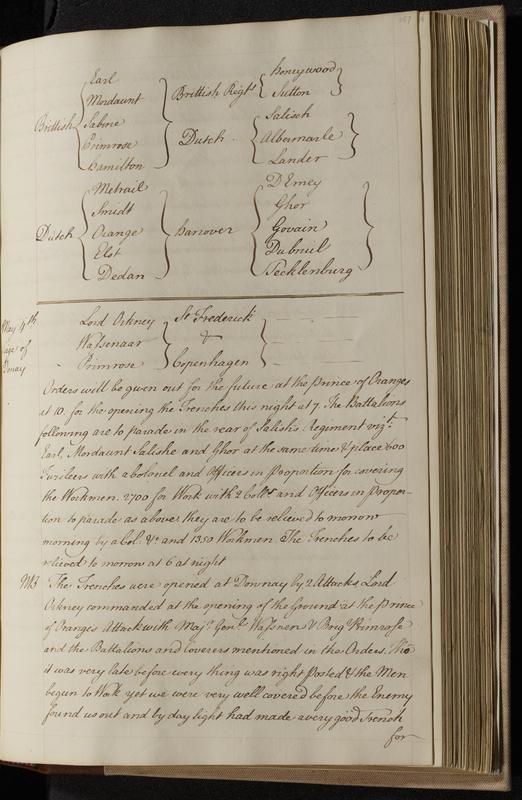 157
Earl
Mordaunt
Brittish Sabine Brittish Regts Honeywood
Primrose Sutton
Hamilton
Dutch Salisch
Albermarle
Lander
Metrail
Smidt
Dutch Orange Hanover D'Erney
Elst Ghor
Dedan Govain
Dubruil
Tecklenburg
May 4th Lord Orkney Sr Frederick
of Wassenaar &
Primrose Copenhagen
Orders will be given out for the future at the Prince of Oranges
at 10. for the opening the Trenches this night at 7. The Battalions
following are to parade in the rear of Salish's Regiment vizt.
Earl, Mordaunt Salishe and Ghor at the same time & place 600
Fuzileers with a Colonel and Officers in Proportion for covering
the Workmen. 2700 for Work with 2 Collos and Officers in Propor-
tion to parade as above they are to be relieved to morrow
morning by a Col: &c. and 1350 Workmen. The Trenches to be
relieved to morrow at 6 at night
MB The Trenches were opened at Downay by 2 Attacks, Lord
Orkney commanded at the opening of the Ground at the Prince
of Oranges Attack with Majr. Genl. Wassnen & Brigr Primrose
and the Battalions and Coverers mentioned in the Orders. Tho
it was very late before every thing was right Posted & the Men
begun to Work yet we were very well covered before the Enemy
found us out and by day light had made a very good Trench
for